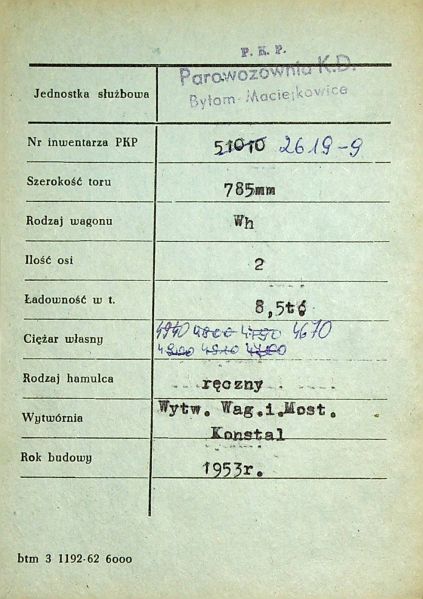 P. K. P.
Parowozownia K.D.
Bytom-Maciejkowice
Jednostka służbowa
Nr inwentarza PKP 51010 2619-9
Szerokość toru 785mm
Rodzaj wagonu Wh
Ilość osi 2
Ładowność w t. 8,5t
Ciężar własny 4670
Rodzaj hamulca ręczny
Wytwórnia Wytw. Wag.i.Most.
Konstal
Rok budowy 1953r.
btm 3 1192-62 6000